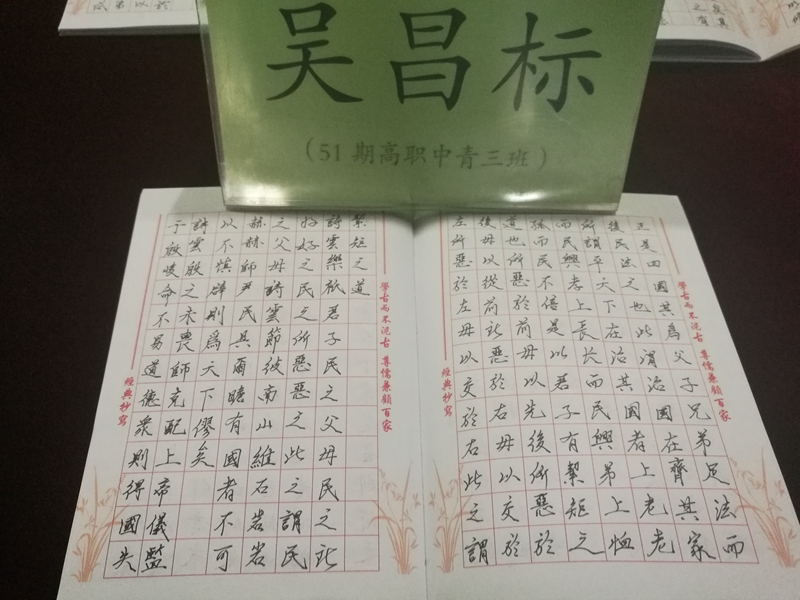 吴昌标
(51期高职中青三班)
正是四國其爲父子兄弟足法而
後民法之也此謂治國在齊其家
所謂平天下在治其國者上老老
而民興孝上長長而民興弟上恤
孤而民不倍是以君子有絜矩之
道也所惡於前毋以先後所惡於
後毋以從前所惡於右毋以交於
左所惡於左毋以交於右此之謂
學古而不泥古 尊儒兼顧百家
經典抄寫
絜矩之道
詩雲樂祇君子民之父母民之所
好好之民之所惡惡之此之謂民
之父母詩雲節彼南山維石岩岩
赫赫師尹民具爾瞻有國者不可
以不慎辟則爲天下僇矣
詩雲殷之未喪師克配上帝儀監
于殷峻命不易道德衆則得國失
學古而不泥古 尊儒兼顧百家
經典抄寫